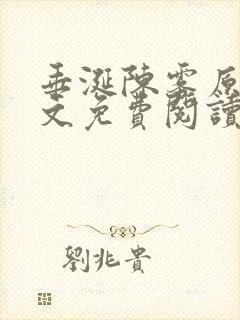 垂涎陳雾原
文免費閱讀
劉兆貴